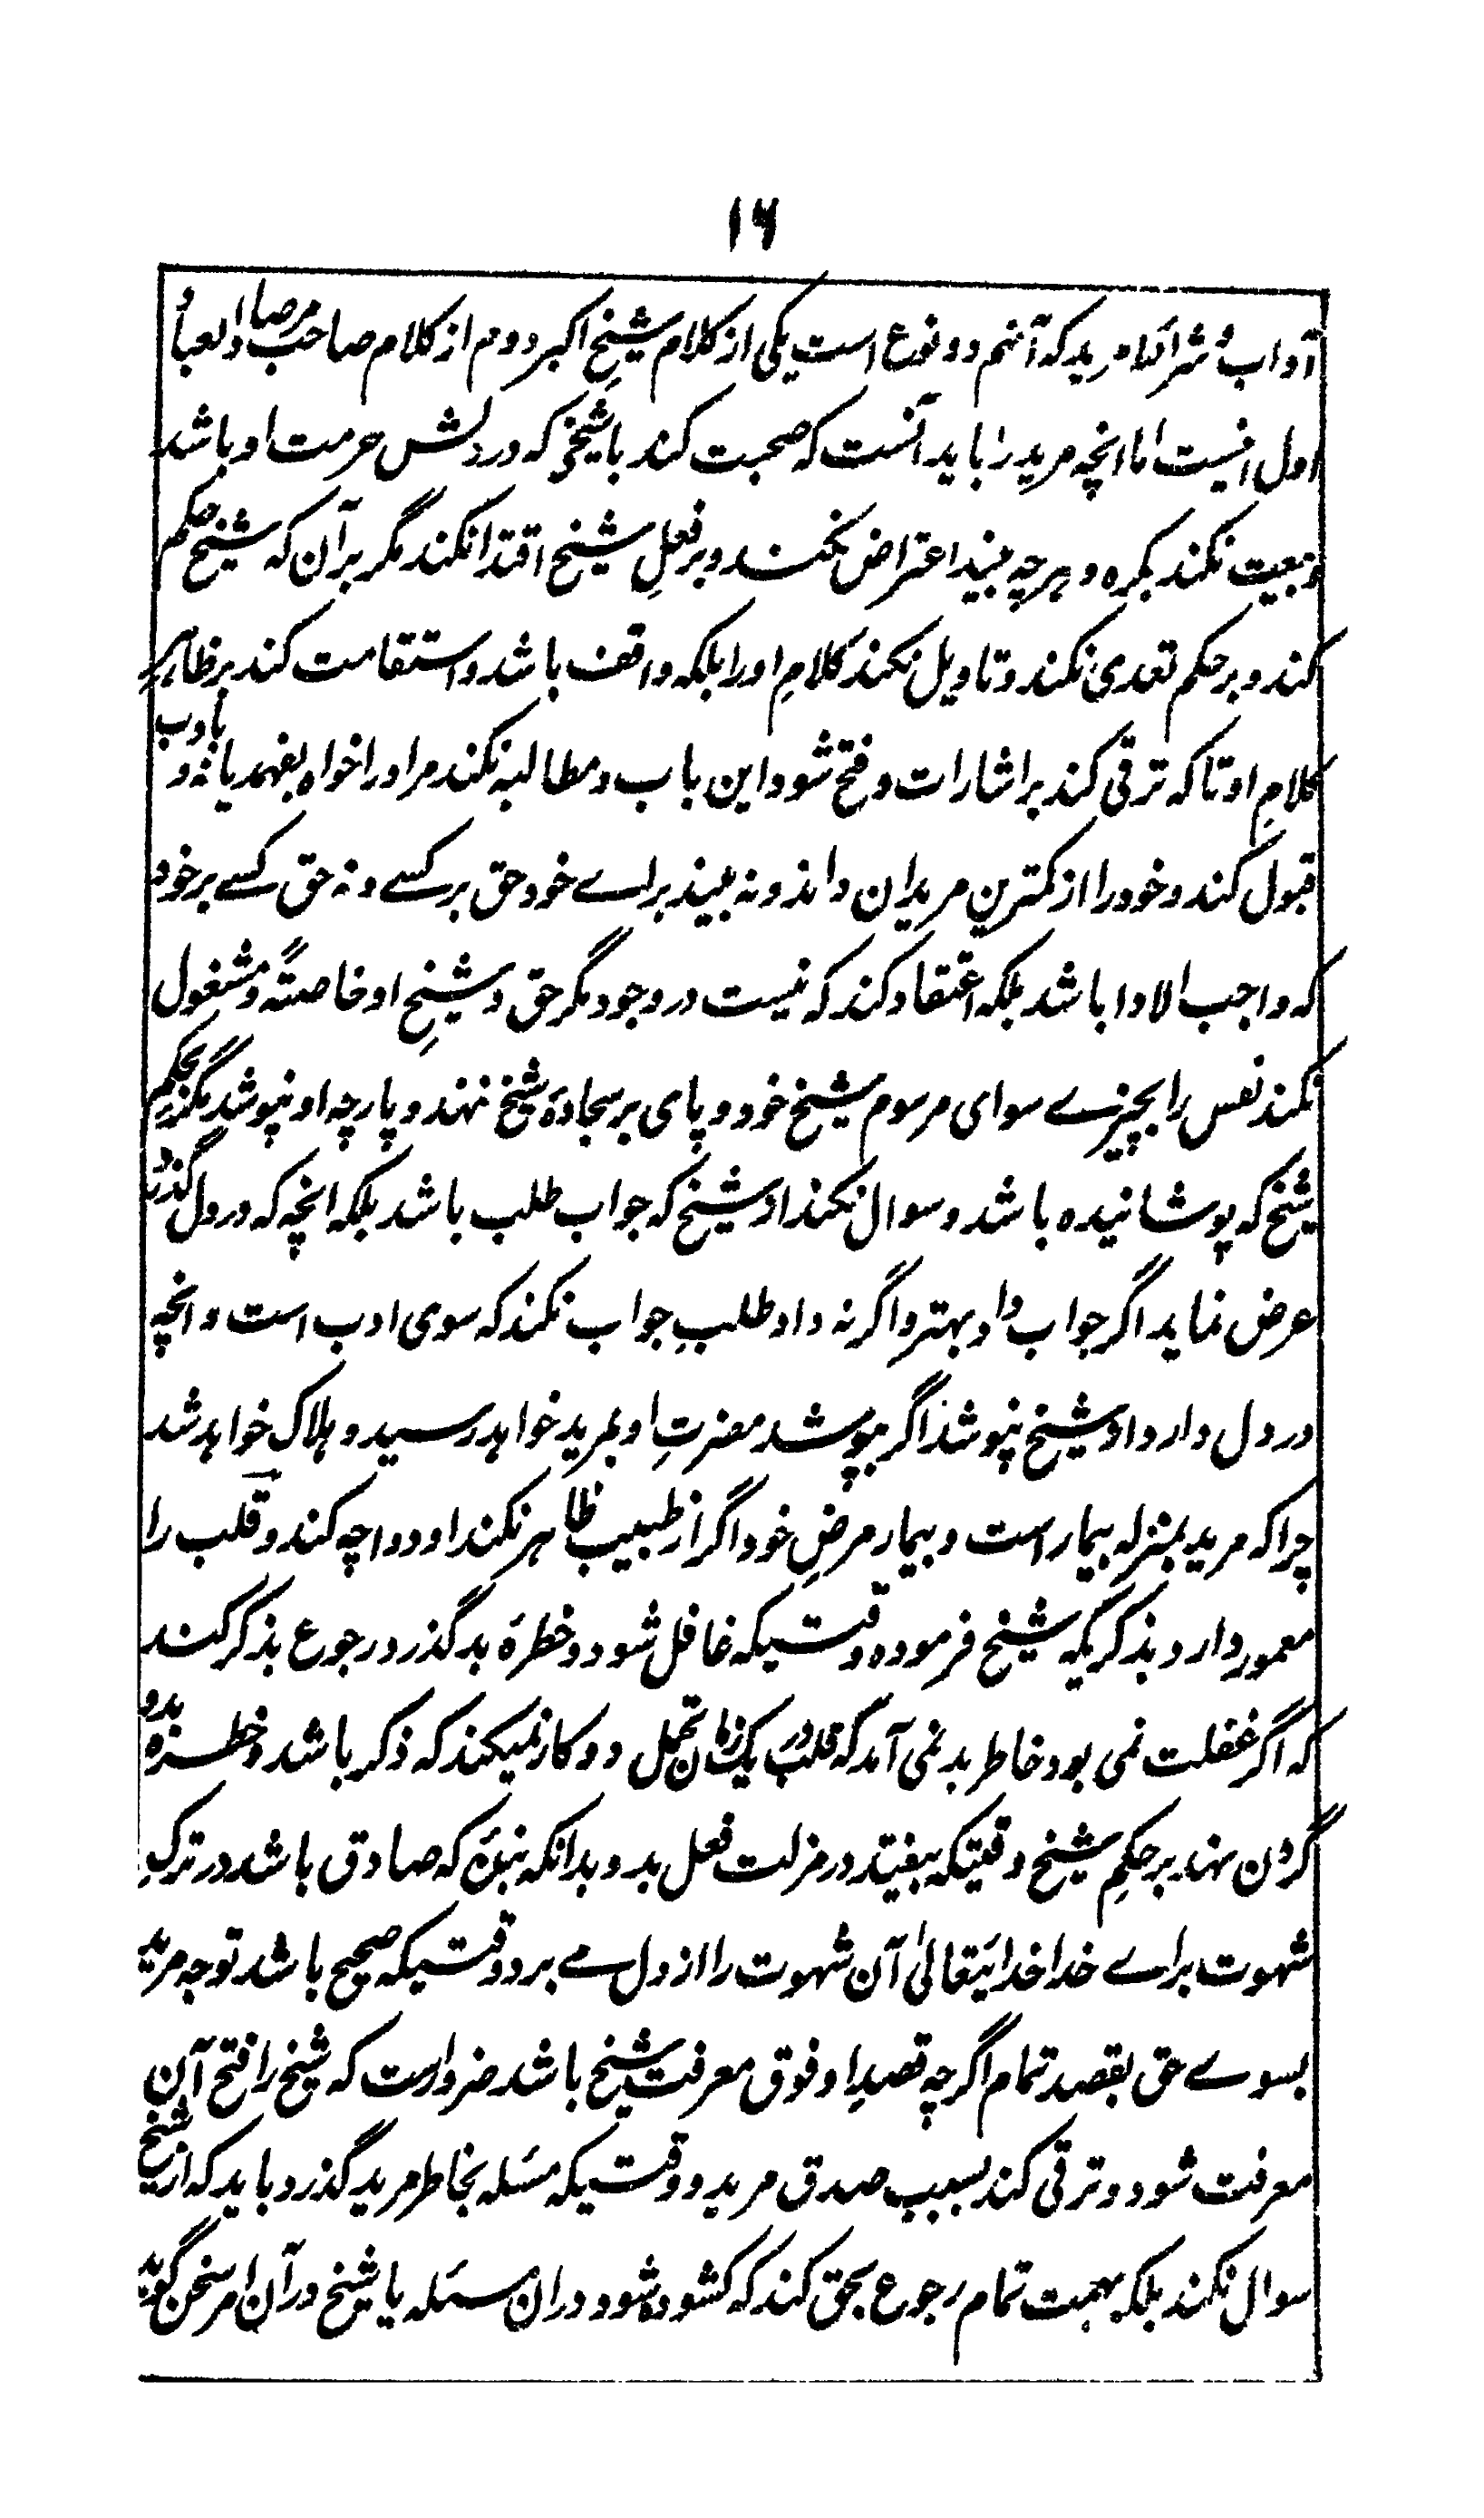 ۱۶
آداب و شرائط مرید که آنهم دو نوع است یکی از کلام شیخِ اکبر دوم از کلام صاحب مرصاد العباد
اول اینست اما انچه مرید را باید آنست که صحبت کند با شیخی که در دلش حرمت او باشد
و بیعت نکند بکره و هرچه بیند اعتراض نکند و بر فعلِ شیخ اقتدا نکند مگر بر آن که شیخ حکم
کند و بر حکم تعدی نکند و تاویل نکند کلامِ او را بلکه واقف باشد و استقامت کند بر ظاہر
کلامِ او تا که ترقی کند بر اشارات و فتح شود این باب و مطالبه نکند مر او را خواه بفهمد یا نه و بادب
قبول کند و خود را از کمترین مریدان داند و نه بیند براے خود حق بر کسے و نه حق کسے بر خود
که واجب الادا باشد بلکه اعتقاد کند که نیست در وجود مگر حق و شیخِ او خاصتہً و مشغول
نکند نفس را بچیزے سوای مرسوم شیخ خود و پای بر سجادۂ شیخ ننهد و پارچه او نپوشد مگر بحکمِ
شیخ که پوشانیده باشد و سوال نکند از شیخ که جواب طلب باشد بلکه انچه که در دل گذرد
عرض نماید اگر جواب داد بهتر و اگر نه داد طلبِ جواب نکند که سوی ادب است و انچه
در دل دارد از شیخ نپوشد اگر بپوشد مضرتِ او بمرید خواهد رسید و ہلاک خواهد شد
چرا که مرید بمنزله بیمار است و بیمار مرضِ خود اگر از طبیب ظاہر نکند او دوا چه کند و قلب را
معمور دارد بذکریکه شیخ فرموده وقتیکه غافل شود و خطرۂ بد گذرد رجوع بذکر کند
که اگر غفلت نمی بود خاطر بد نمی آمد که قلب در یک زمان تحمل دو کار نمیکند که ذکر باشد و خطرہ بد و
گردن نهد بر حکمِ شیخ وقتیکه بیفتد در مزلت فعل بد و بدانکه بندۂ که صادق باشد در ترکِ
شهوت براے خدا خدایتعالیٰ آن شهوت را از دل مے برد وقتیکه صحیح باشد توجه مرید
بسوے حق بقصد تمام اگرچه قصدِ او فوق معرفت شیخ باشد ضرور است که شیخ را فتح آن
معرفت شود و ترقی کند بسبب صدق مرید و وقتیکه مسئله بخاطر مرید گذرد باید که از شیخ
سوال نکند بلکه بهمت تمام رجوع بحق کند که کشوده شود در ان مسئله یا شیخ در آن امر سخن گوید